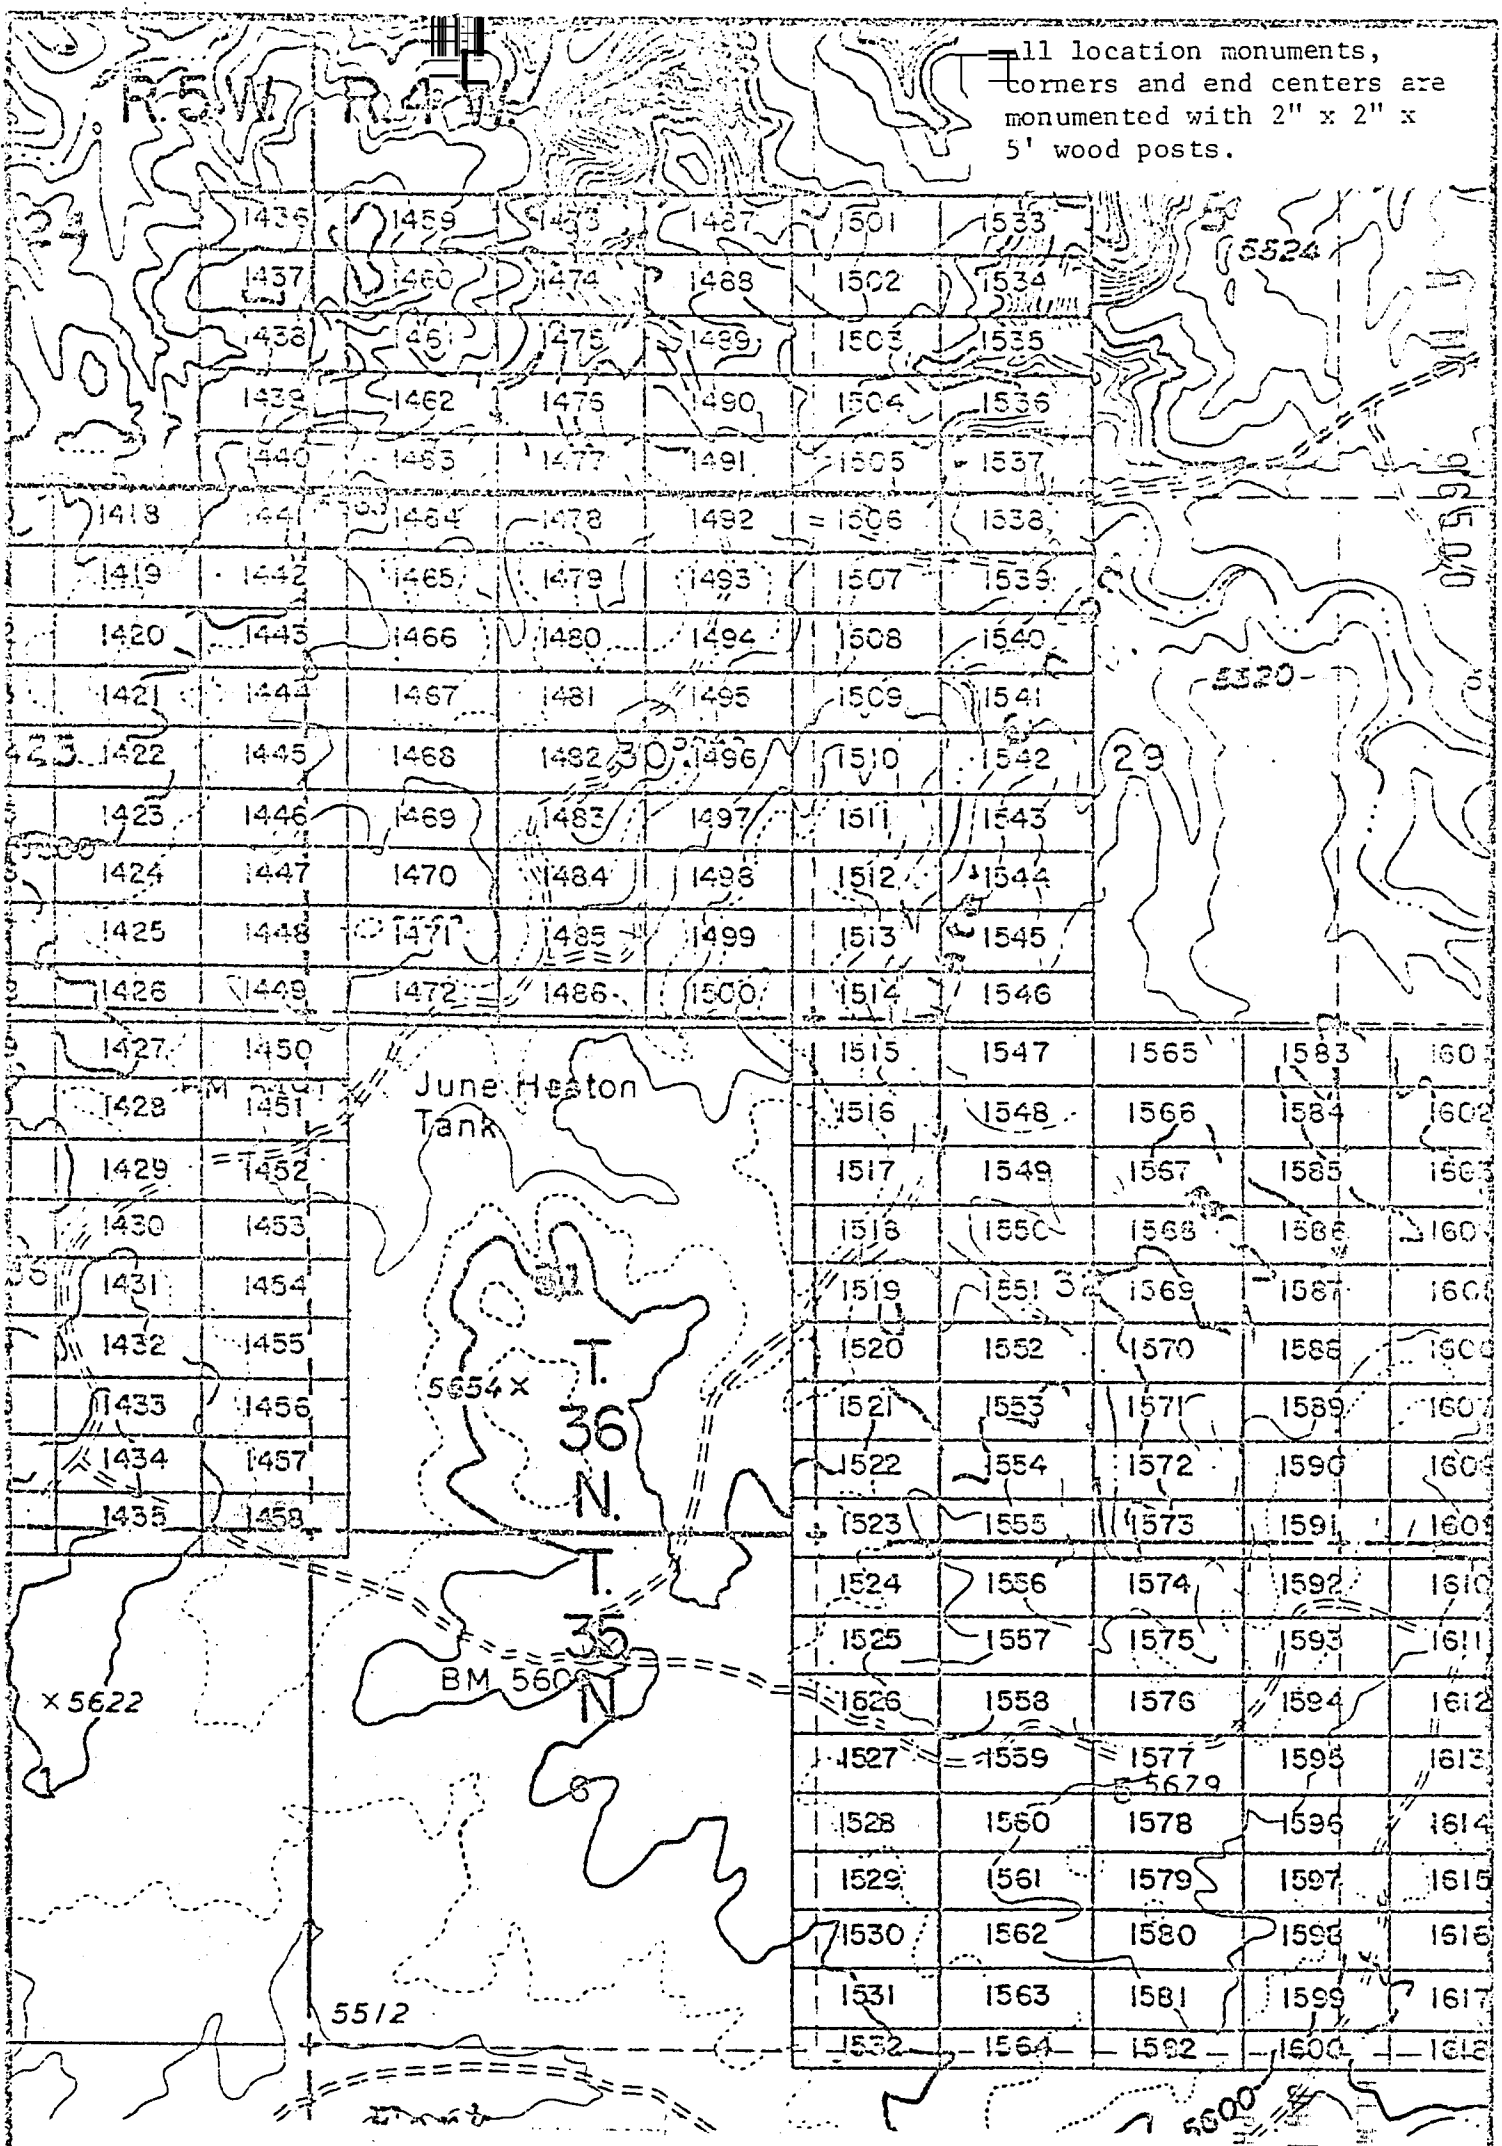 All location monuments,
corners and end centers are
monumented with 2" x 2" x
5' wood posts.
R.5W. R.4W.
24 1436 1459 1473 1487 1501 1533
5524
1437 1460 1474 1488 1502 1534
1438 1461 1475 1489 1503 1535
1439 1462 1476 1490 1504 1536
1440 1463 1477 1491 1505 1537
1418 1441 1464 1478 1492 1506 1538
1419 1442 1465 1479 1493 1507 1539
1420 1443 1466 1480 1494 1508 1540
1421 1444 1467 1481 1495 1509 1541 5520
1422 1445 1468 1482 30 1496 1510 1542 29
1423 1446 1469 1483 1497 1511 1543
1424 1447 1470 1484 1498 1512 1544
1425 1448 1471 1485 1499 1513 1545
1426 1449 1472 1486 1500 1514 1546
1427 1450 1515 1547 1565 1583
June Heaton
Tank
1428 1451 1516 1548 1566 1584 1602
1429 1452 1517 1549 1567 1585 1603
1430 1453 1518 1550 1568 1586
31
1431 1454 1519 1551 32 1569 1587
1432 1455 T. 1520 1552 1570 1588
5654
1433 1456 36 1521 1553 1571 1589 1607
1434 1457 N. 1522 1554 1572 1590
1435 1458 1523 1555 1573 1591 1609
T. 1524 1556 1574 1592 1610
35 1525 1557 1575 1593 1611
BM 560
5622 N 1526 1558 1576 1594 1612
1527 1559 1577 1595 1613
6 5 5679
1528 1560 1578 1596 1614
1529 1561 1579 1597 1615
1530 1562 1580 1598 1616
1531 1563 1581 1599 1617
5512
1532 1564 1582 1600 1618
5600